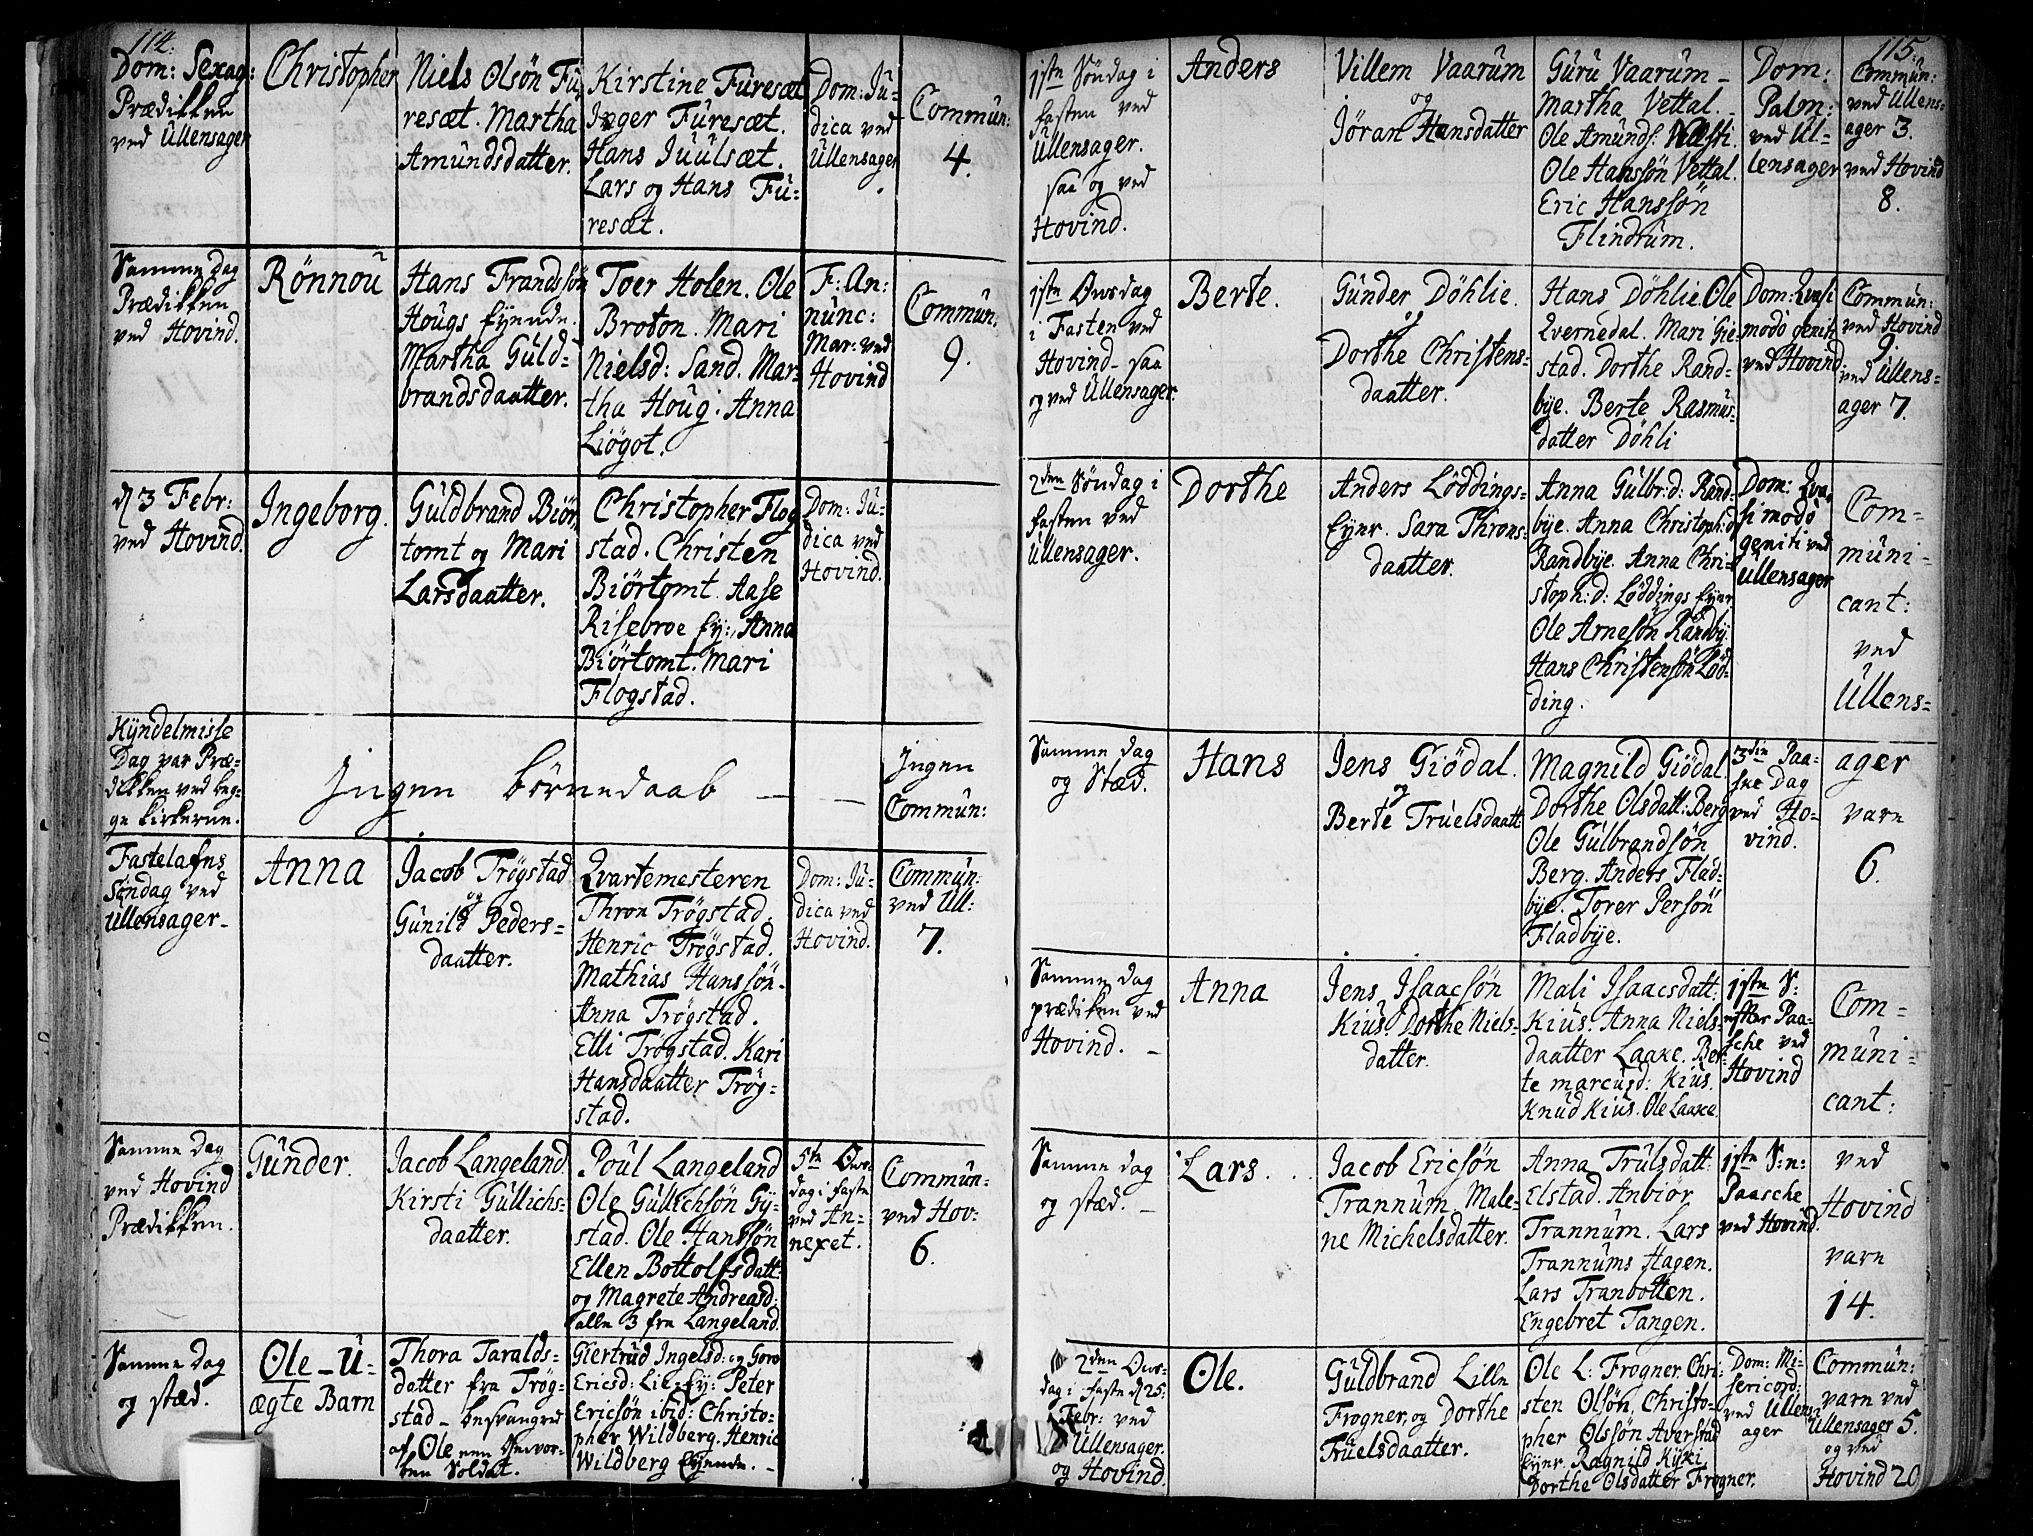 114.
Dom: Sexag:
Prædikken
ved Ullensager
Christopher
Niels Olsön Fu,
resæt. Martha
Amundsdatter.
Kirstine Furesæt
Inger Furesæt.
Hans Juulsæt.
Lars og Hans Fu:
resæt.
Dom: Ju-
dica ved
Ullensager
Commun:
4.
Samme Dag
Prædikken
ved Hovind.
Rönnou
Hans Frandssön
Hougs Eyende.
Martha Guld-
brandsdaatter.
Toer Holen. Ole
Broton. Mari
Nielsd: Sand. Mar-
tha Houg. Anna
Liögot.
F: An:
nunc:
Mar: ved
Hovind
Commun:
9.
d 3 Febr:
ved Hovind.
Ingeborg.
Guldbrand Biör,
tomt og Mari
Larsdaatter.
Christopher Flog
stad. Christen
Biörtomt. Aase
Risebroe Ey:, Anna
Biörtomt. Mari
Flogstad.
Dom: Ju-
dica ved
Hovind.
Kyndelmisse
Dag var Præ-
dikken ved beg-
ge kirkerne.
Ingen börnedaab - -
Ingen
Commun:
Fastelafns
Söndag ved
Ullensager-
Anna
Jacob Trögstad
og
Gunild Peders-
daatter.
Qvartemesteren
Thron Trögstad.
Henric Trögstad.
Mathias Hanssön-
Anna Trögstad.
Elli Trögstad. Kari
Hansdaatter Trög-
stad.
Dom: Ju-
dica ved
Hovind.
Commun:
ved Ull:
7.
Samme Dag
ved Hovind
Prædikken.
Gunder.
Jacob Langeland
Kirsti Gullichs-
daatter.
Poul Langeland
Ole Gullichsön Gy-
stad. Ole Hanssön
Ellen Bottolfsdatt:
og Magrete Andreasd:
alle 3 fra Langeland.
5te Ons-
dag i faste
ved An-
nexet.
Commun:
ved Hov:
6.
Samme Dag
og stæd.
Ole - U-
ægte Barn
Thora Taralds-
datter fra Trög-
stad - besvangred
af Ole een Gevor-
ben Soldat.
Giertrud Ingelsd: og Goro
Ericsd: Lie Ey: Peter
Ericsön ibid: Christo-
pher Wildberg. Henric
Wildberg Eyende. -
115.
1ste Söndag i
fasten ved
Ullensager.
saa og ved
Hovind.
Anders
Villem Vaarum
og
Jöran Hansdatter
Guru Vaarum-
Martha Vettal.
Ole Amunds:
Ole Hanssön Vettal.
Eric Hanssön
Flindrum.
Dom:
Palm:
ved Ul-
lensager
Commun:
ved Ullens-
ager 3.
ved Hovind
8.
1ste Onsdag
i Fasten ved
Hovind- saa
og ved Ullensager.
Berte.
Gunder Döhlie.
og
Dorthe Christens-
daatter.
Hans Döhlie. Ole
Qvernedal. Mari Gie-
stad. Dorthe Rand-
bye. Berte Rasmus-
datter Döhli
Dom: Qvasi
modo genit:
ved Hovind.
Commun:
ved Hovind
9.
ved Ullens-
ager 7.
2den Söndag i
fasten ved
Ullensager.
Dorthe
Anders Löddings-
Eyer. Sara Throns-
daatter.
Anna Gulbr:d: Rand-
bye. Anna Christoph:d
Randbye. Anna Chri-
stoph:d: Löddings Eyer
Ole Arnesön Randby.
Hans Christensön Löd-
ding.
Dom: Qva-
si modo
geniti ved
Ullensager
Com-
muni-
cant:
ved
Ullens-
Samme Dag
og Stæd.
Hans
Jens Giödal.
og
Berte Truelsdaatt
Magnild Giödal.
Dorthe Olsdatt: Berg
Ole Gulbrandsön
Berg. Anders Flad-
bye. Torer Persön
Fladbye.
3die Paa-
ske Dag
ved Ho-
vind.
ager
vare
6.
Samme Dag
prædiken ved
Hovind. -
Anna
Jens Isaacsön
Kius. Dorthe Niels-
datter.
Mali Isaacsdatt:
Kius. Anna Niels-
daatter Laake. Ber-
te Marcusd: Kius.
Knud Kius. Ole Laake
1ste S:
efter Paa-
sche ved
Hovind
Com-
muni-
cant:
Samme Dag
og stæd. -
Lars. . .
Jacob Ericsön
Trannum. Male-
ne Michelsdatter.
Anna Trulsdatt:
Elstad. Anbiör
Trannum. Lars
Trannums Hagen.
Lars Tranbotten.
Engebret Tangen.
1ste S:n:
Paasche
ved Hovind.
ved
Hovind
vare
14.
2den Ons-
dag i faste d 25
Febr: ved
Ullensager.
og Hovind.
Ole.
Guldbrand Lille
Frogner, og Dorthe
Truelsdaatter.
Ole L: Frogner. Chri-
sten Olsön, Christo-
pher Olssön Averstad
Eyer. Ragnild Kyxi
Dorthe Olsdatter Frogner.
Dom: Mi-
sericord:
ved Ullens-
ager
Commun:
vare ved
Ullensager 5.
og ved
Hovind 20